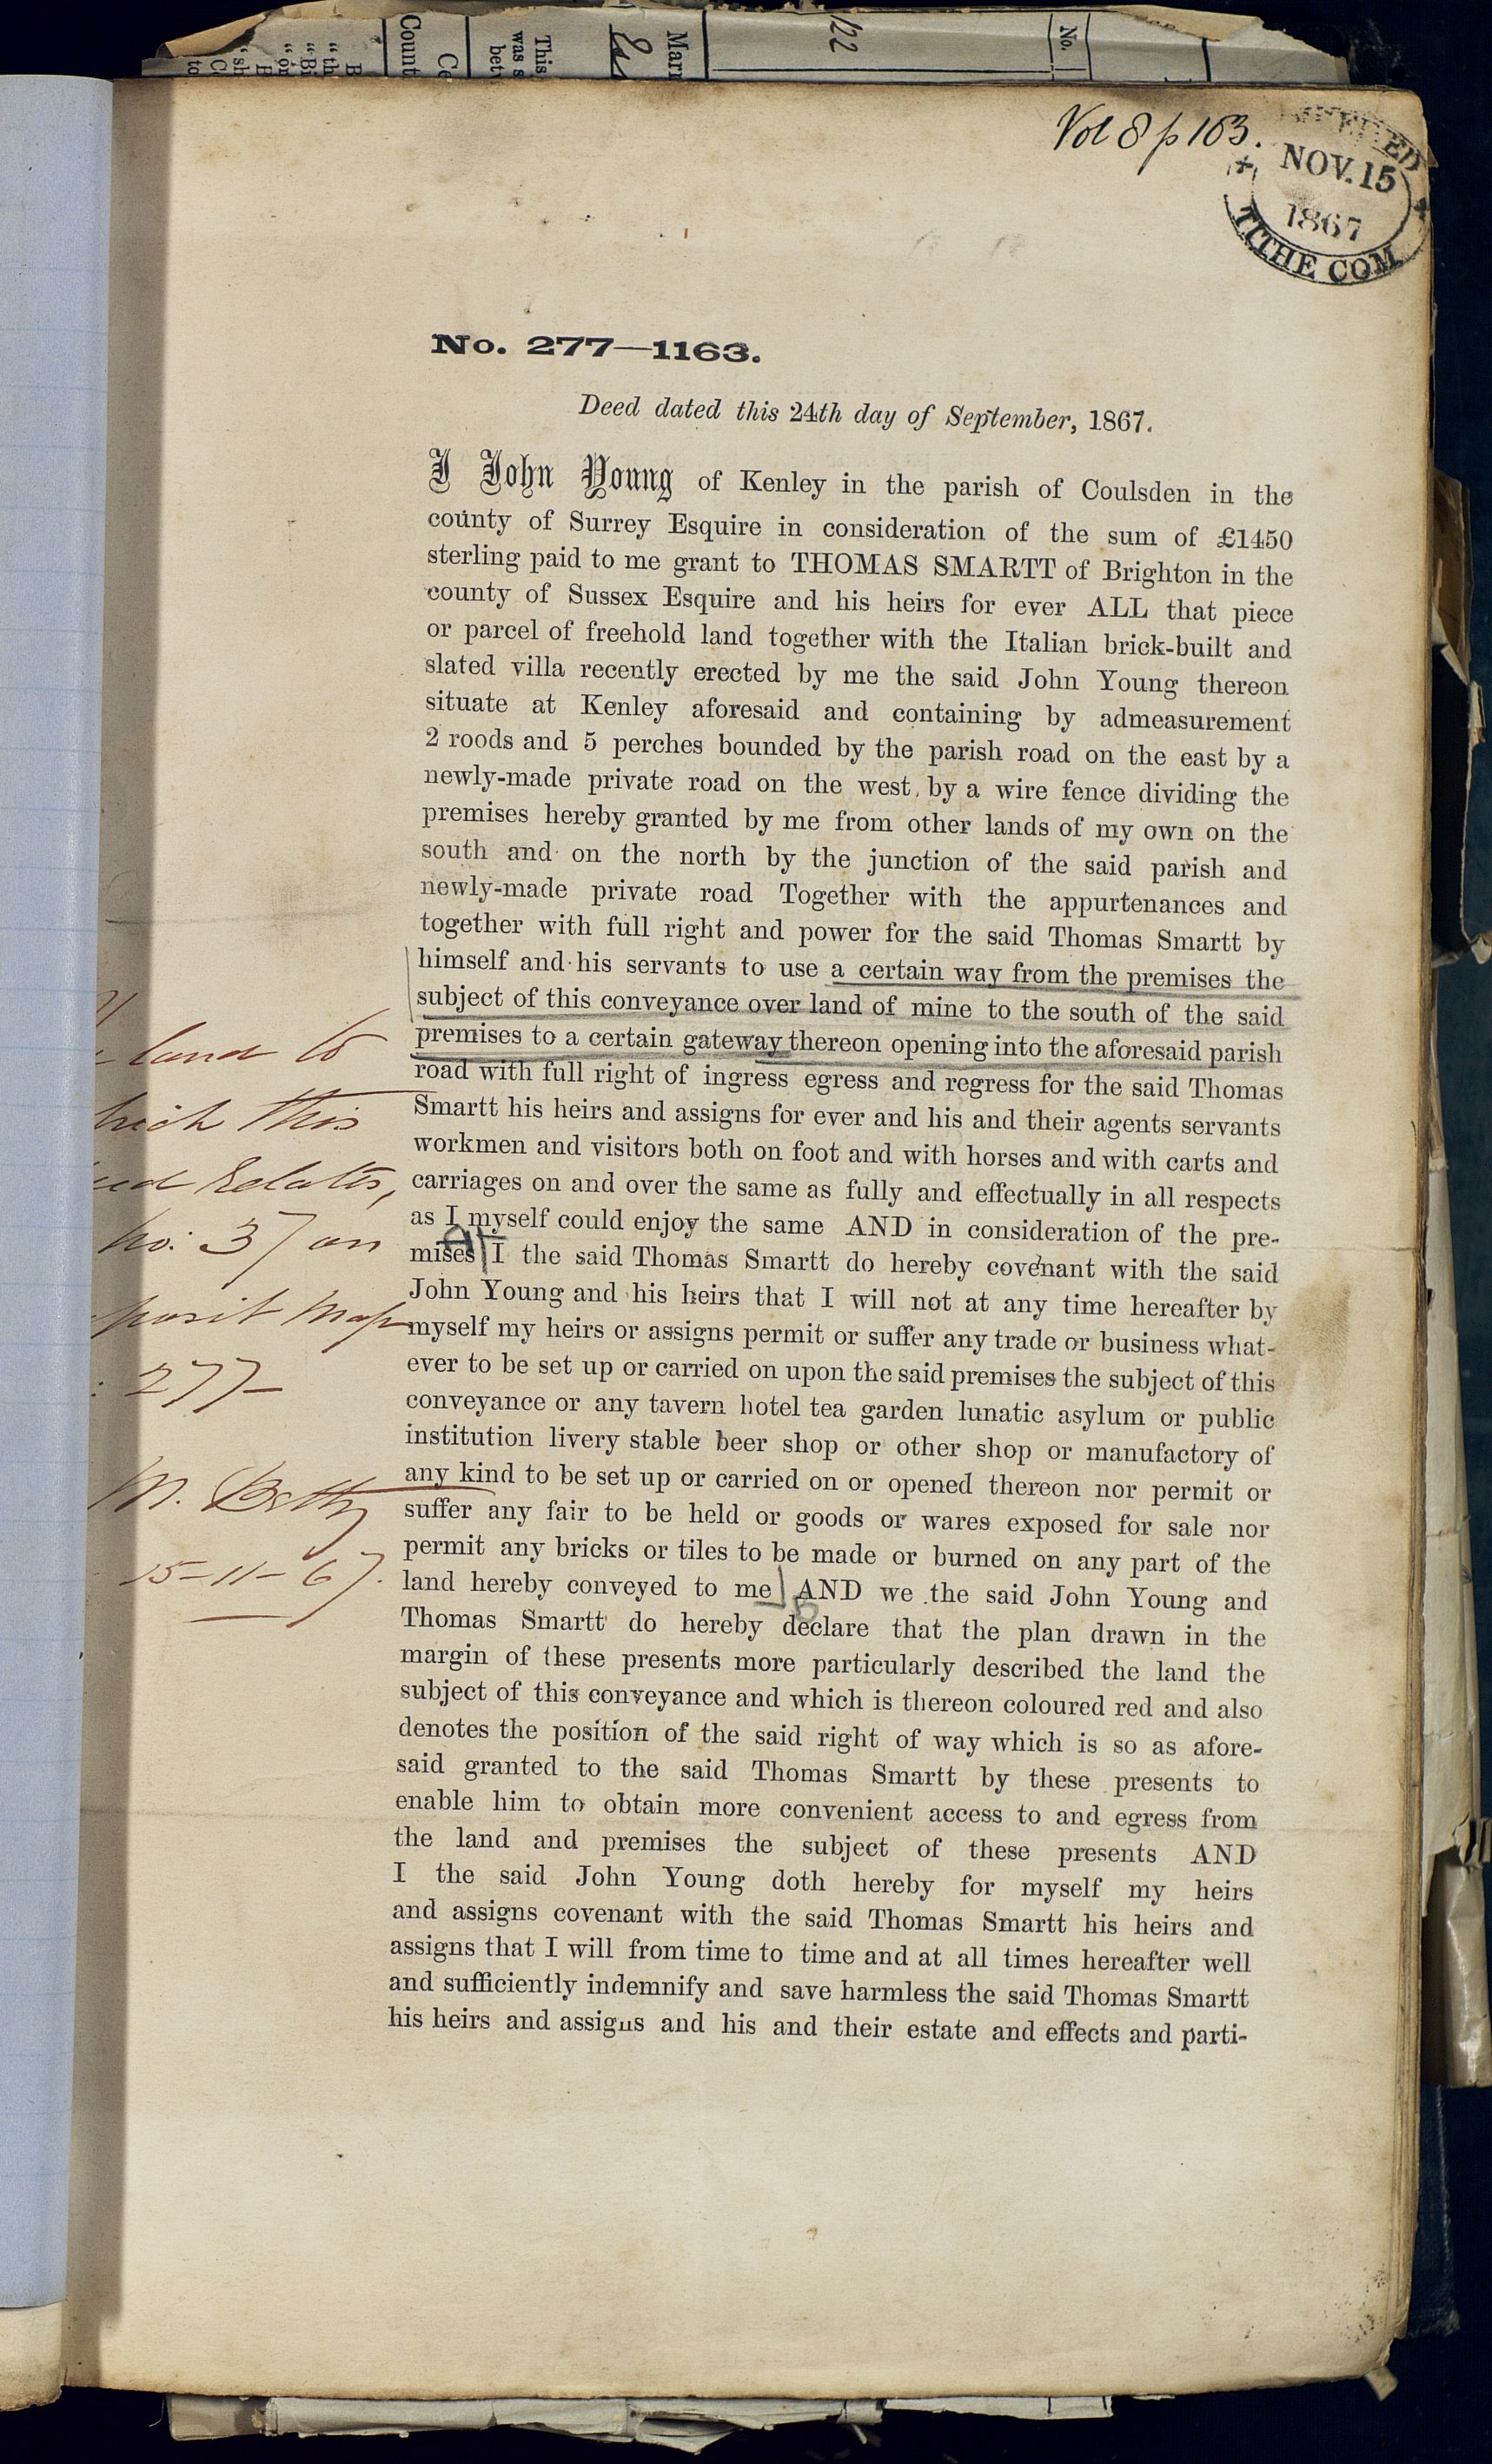 No.
122
Marr
This
was s
bet
Ce
Count
B
"th
"Bi
"or
E
"sh
C
to
Vol 8 p 163.
NOV. 15
1867
TITHE COM
No. 277—1163.
Deed dated this 24th day of September, 1867.
I John Young of Kenley in the parish of Coulsden in the
county of Surrey Esquire in consideration of the sum of £1450
sterling paid to me grant to THOMAS SMARTT of Brighton in the
county of Sussex Esquire and his heirs for ever ALL that piece
or parcel of freehold land together with the Italian brick-built and
slated villa recently erected by me the said John Young thereon
situate at Kenley aforesaid and containing by admeasurement
2 roods and 5 perches bounded by the parish road on the east by a
newly-made private road on the west, by a wire fence dividing the
premises hereby granted by me from other lands of my own on the
south and on the north by the junction of the said parish and
newly-made private road Together with the appurtenances and
together with full right and power for the said Thomas Smartt by
himself and his servants to use a certain way from the premises the
subject of this conveyance over land of mine to the south of the said
premises to a certain gateway thereon opening into the aforesaid parish
road with full right of ingress egress and regress for the said Thomas
Smartt his heirs and assigns for ever and his and their agents servants
workmen and visitors both on foot and with horses and with carts and
carriages on and over the same as fully and effectually in all respects
as I myself could enjoy the same AND in consideration of the pre-
mises I the said Thomas Smartt do hereby covenant with the said
John Young and his heirs that I will not at any time hereafter by
myself my heirs or assigns permit or suffer any trade or business what-
ever to be set up or carried on upon the said premises the subject of this
conveyance or any tavern hotel tea garden lunatic asylum or public
institution livery stable beer shop or other shop or manufactory of
any kind to be set up or carried on or opened thereon nor permit or
suffer any fair to be held or goods or wares exposed for sale nor
permit any bricks or tiles to be made or burned on any part of the
land hereby conveyed to me AND we the said John Young and
Thomas Smartt do hereby declare that the plan drawn in the
margin of these presents more particularly described the land the
subject of this conveyance and which is thereon coloured red and also
denotes the position of the said right of way which is so as afore-
said granted to the said Thomas Smartt by these presents to
enable him to obtain more convenient access to and egress from
the land and premises the subject of these presents AND
I the said John Young doth hereby for myself my heirs
and assigns covenant with the said Thomas Smartt his heirs and
assigns that I will from time to time and at all times hereafter well
and sufficiently indemnify and save harmless the said Thomas Smartt
his heirs and assigns and his and their estate and effects and parti-
land to
this
relates,
no: 37 on
Map
277—
15-11-67.